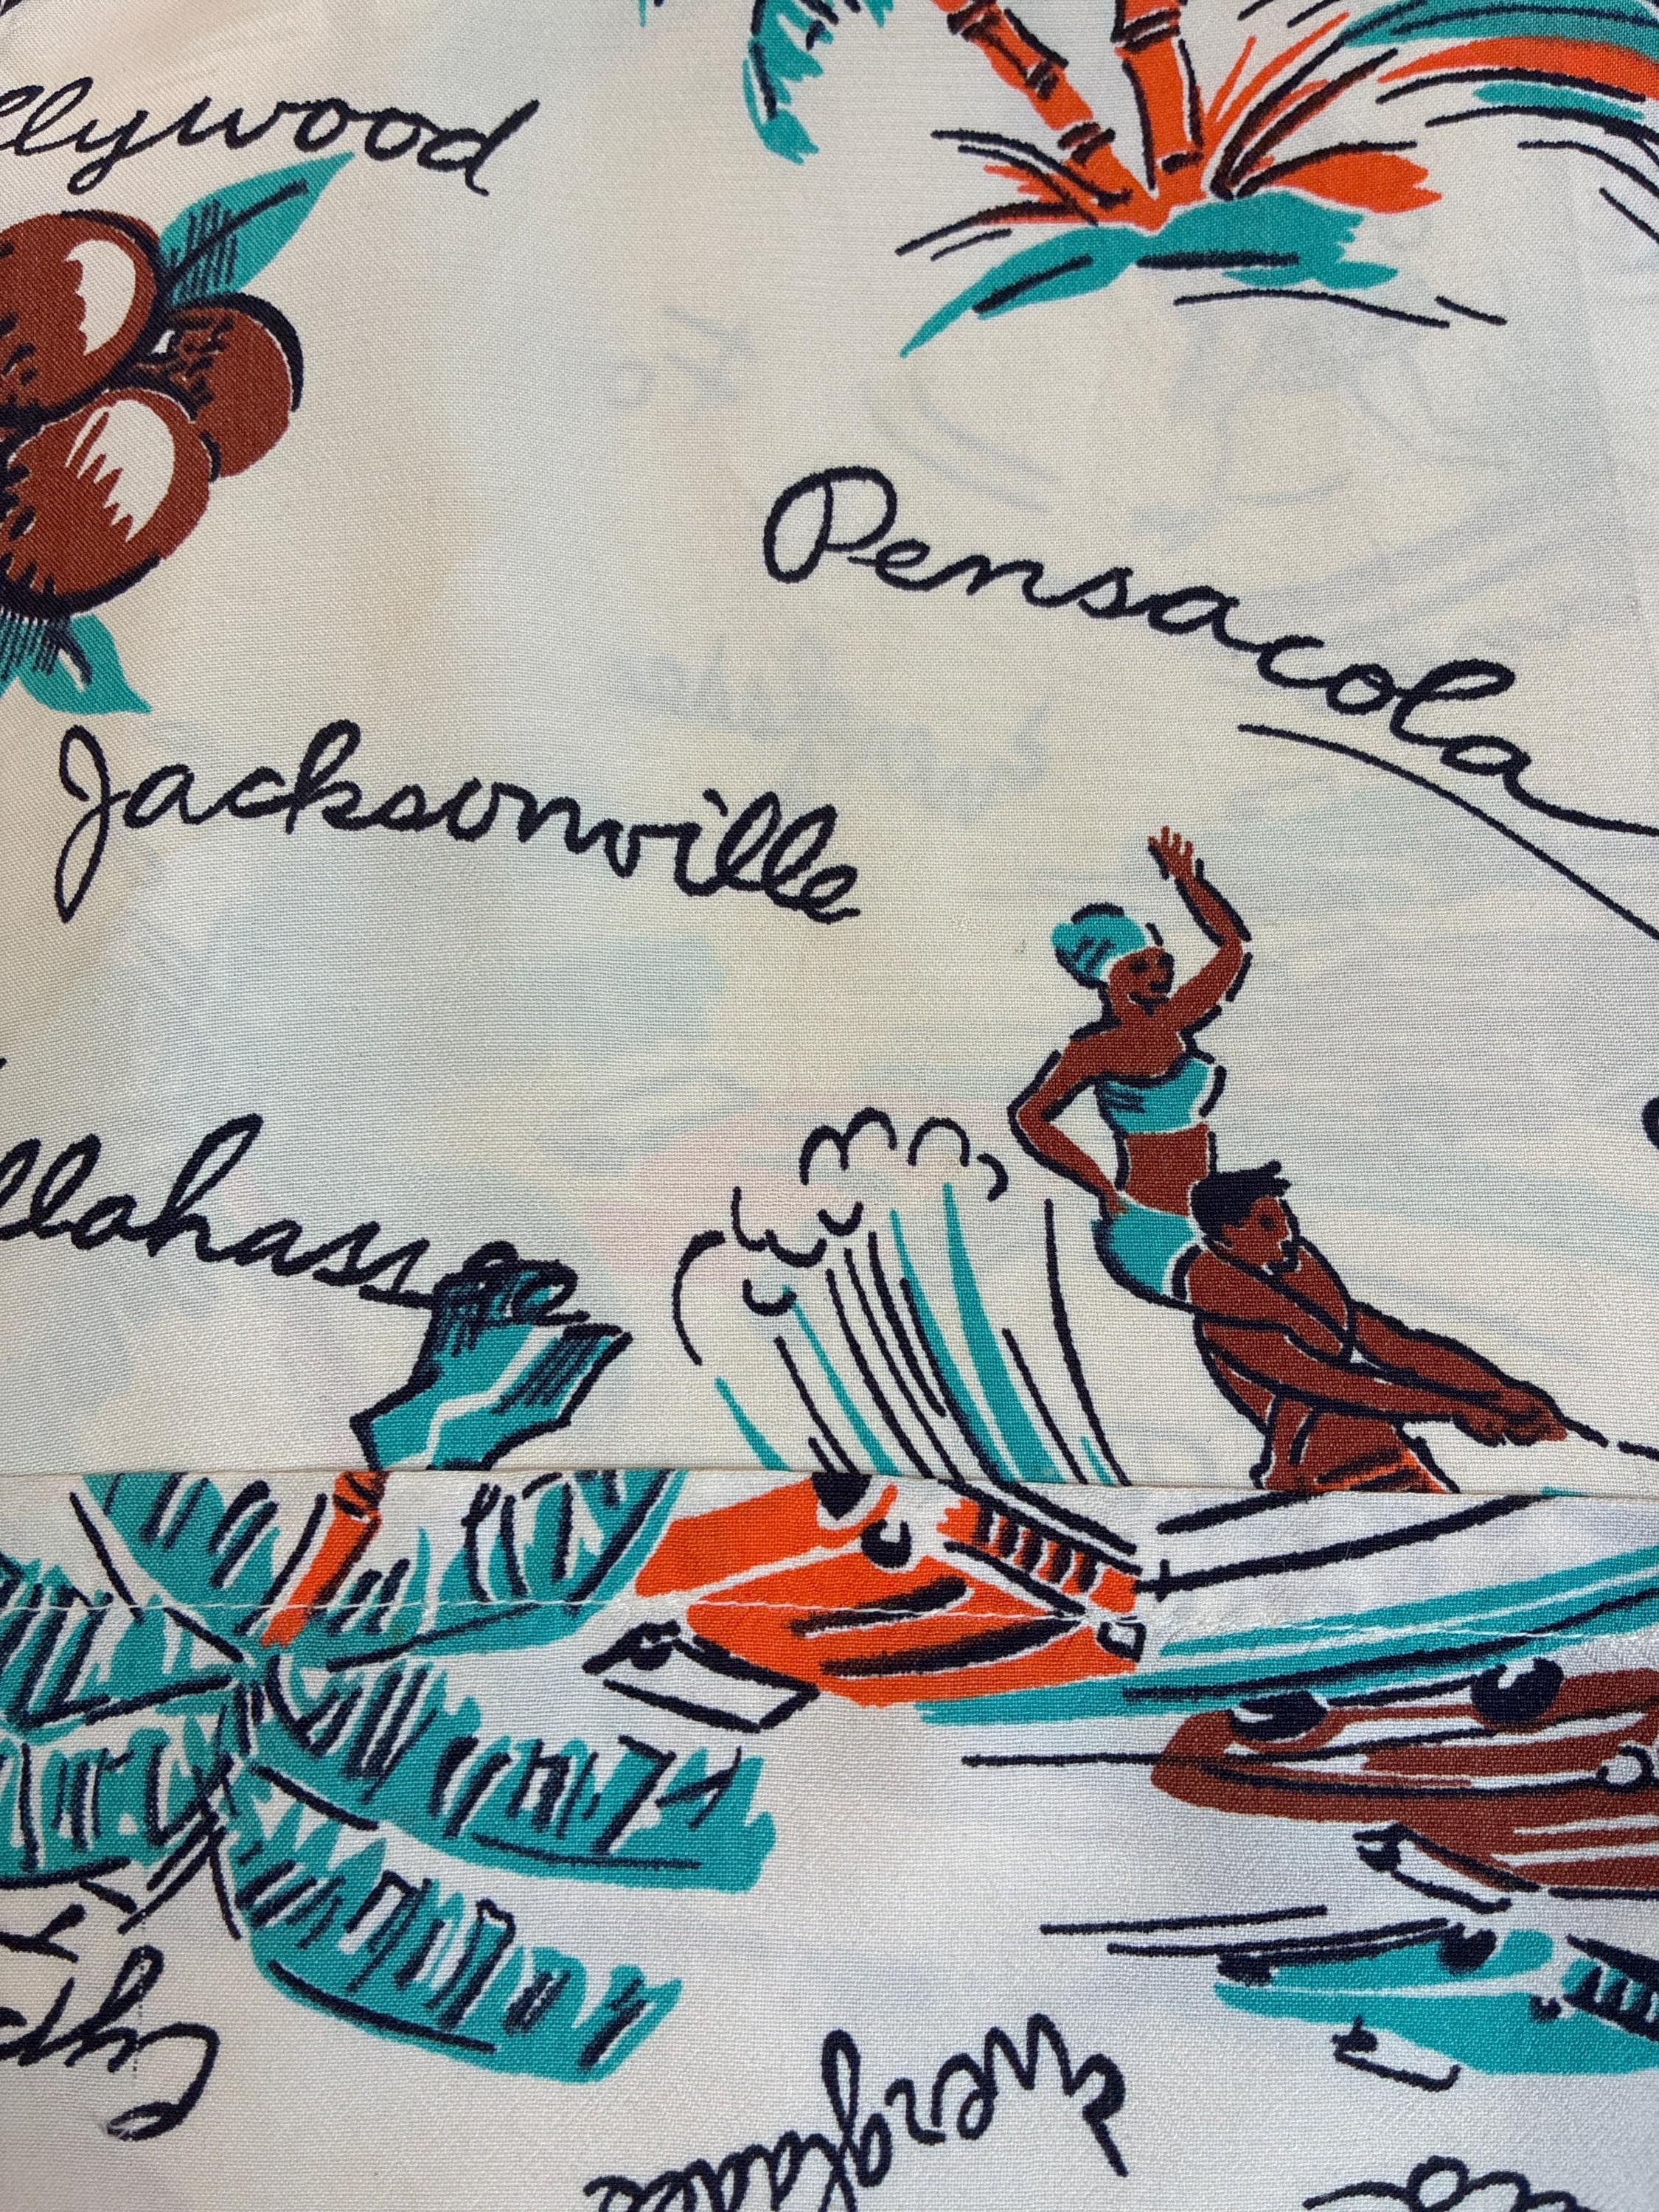 llywood
Pensacola
Jacksonville
llahassee
Cyp
Everglades